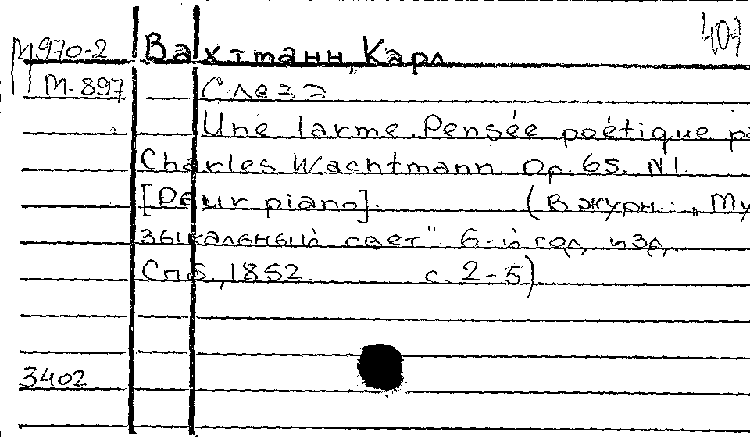 401
М970-2 Вахтманн, Карл
М-897 Слеза
Une larme. Pensée poétique p
Charles Wachtmann. Op. 65. N1.
[Pour piano]. (В журн.: „Му
зыкальный свет" 6-й год, изд.
Спб., 1852 с. 2-5)
3402